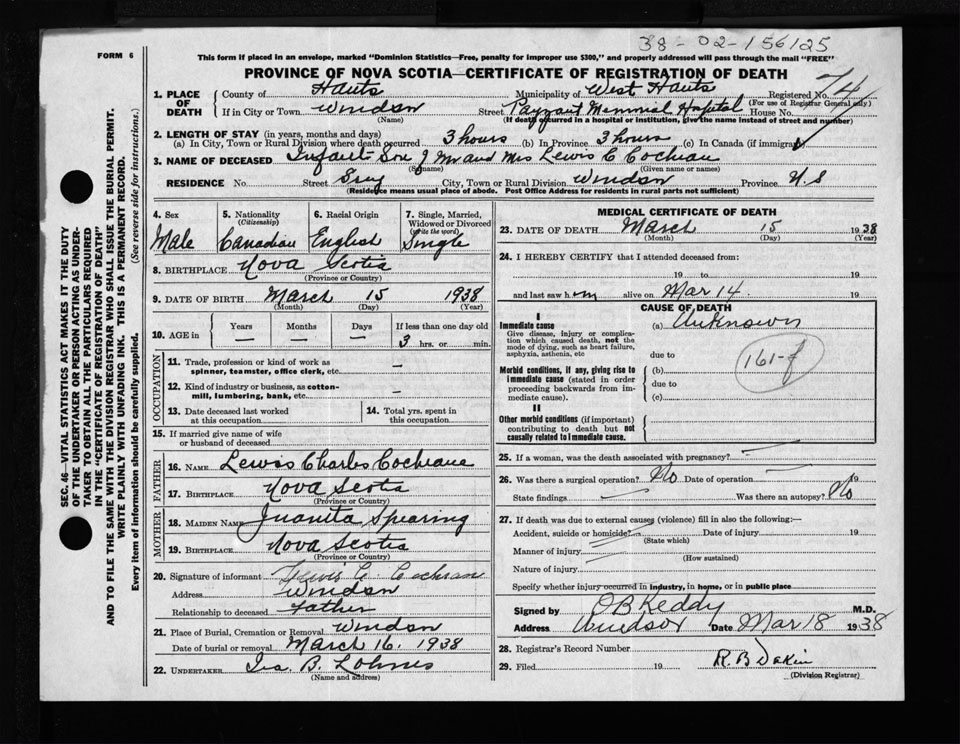 38-02-156125
FORM 6
This form if placed in an envelope, marked "Dominion Statistics—Free, penalty for improper use $300," and properly addressed will pass through the mail "FREE"
PROVINCE OF NOVA SCOTIA—CERTIFICATE OF REGISTRATION OF DEATH
1. PLACE OF DEATH
County of Hants Municipality of West Hants Registered No. 74
(For use of Registrar General only)
If in City or Town Windsor Street Payzant Memorial Hospital House No.
(Name) (If death occurred in a hospital or institution, give the name instead of street and number)
2. LENGTH OF STAY (in years, months and days)
(a) In City, Town or Rural Division where death occurred 3 hours (b) In Province 3 hours (c) In Canada (if immigrant)
3. NAME OF DECEASED Infant Son of Mr and Mrs Lewis C Cochran
(Surname) (Given name or names)
RESIDENCE No. Street Grey City, Town or Rural Division Windsor Province N.S
(Residence means usual place of abode. Post Office Address for residents in rural parts not sufficient)
4. Sex
Male
5. Nationality
(Citizenship)
Canadian
6. Racial Origin
English
7. Single, Married, Widowed or Divorced
(write the word)
Single
8. BIRTHPLACE Nova Scotia
(Province or Country)
9. DATE OF BIRTH March 15 1938
(Month) (Day) (Year)
10. AGE in Years Months Days If less than one day old
— — — 3 hrs. or min.
OCCUPATION
11. Trade, profession or kind of work as
spinner, teamster, office clerk, etc. —
12. Kind of industry or business, as cotton-
mill, lumbering, bank, etc. —
13. Date deceased last worked
at this occupation
14. Total yrs. spent in
this occupation
15. If married give name of wife
or husband of deceased
FATHER
16. NAME Lewis Charles Cochrane
17. BIRTHPLACE Nova Scotia
(Province or Country)
MOTHER
18. MAIDEN NAME Juanita Spearing
19. BIRTHPLACE Nova Scotia
(Province or Country)
20. Signature of informant Lewis C. Cochran
Address Windsor
Relationship to deceased father
21. Place of Burial, Cremation or Removal Windsor
Date of burial or removal March 16, 1938
22. UNDERTAKER B.
(Name and address)
MEDICAL CERTIFICATE OF DEATH
23. DATE OF DEATH March 15 1938
(Month) (Day) (Year)
24. I HEREBY CERTIFY that I attended deceased from:
19 to 19
and last saw him alive on Mar 14 19
CAUSE OF DEATH
I
Immediate cause
Give disease, injury or complica-
tion which caused death, not the
mode of dying, such as heart failure,
asphyxia, asthenia, etc
(a) Unknown
due to
161-f
Morbid conditions, if any, giving rise to
immediate cause (stated in order
proceeding backwards from im-
mediate cause).
(b)
due to
(c)
II
Other morbid conditions (if important)
contributing to death but not
causally related to immediate cause.
25. If a woman, was the death associated with pregnancy? —
26. Was there a surgical operation? No Date of operation 19
State findings Was there an autopsy? No
27. If death was due to external causes (violence) fill in also the following:—
Accident, suicide or homicide? Date of injury 19
(State which)
Manner of injury
(How sustained)
Nature of injury
Specify whether injury occurred in industry, in home, or in public place
Signed by O B Keddy M.D.
Address Windsor Date Mar 18 1938
28. Registrar's Record Number
29. Filed 19 R. B. Dakin
(Division Registrar)
SEC. 46—VITAL STATISTICS ACT MAKES IT THE DUTY
OF THE UNDERTAKER OR PERSON ACTING AS UNDER-
TAKER TO OBTAIN ALL THE PARTICULARS REQUIRED
IN THE "CERTIFICATE OF REGISTRATION OF DEATH"
AND TO FILE THE SAME WITH THE DIVISION REGISTRAR WHO SHALL ISSUE THE BURIAL PERMIT.
WRITE PLAINLY WITH UNFADING INK. THIS IS A PERMANENT RECORD.
Every item of information should be carefully supplied. (See reverse side for instructions.)